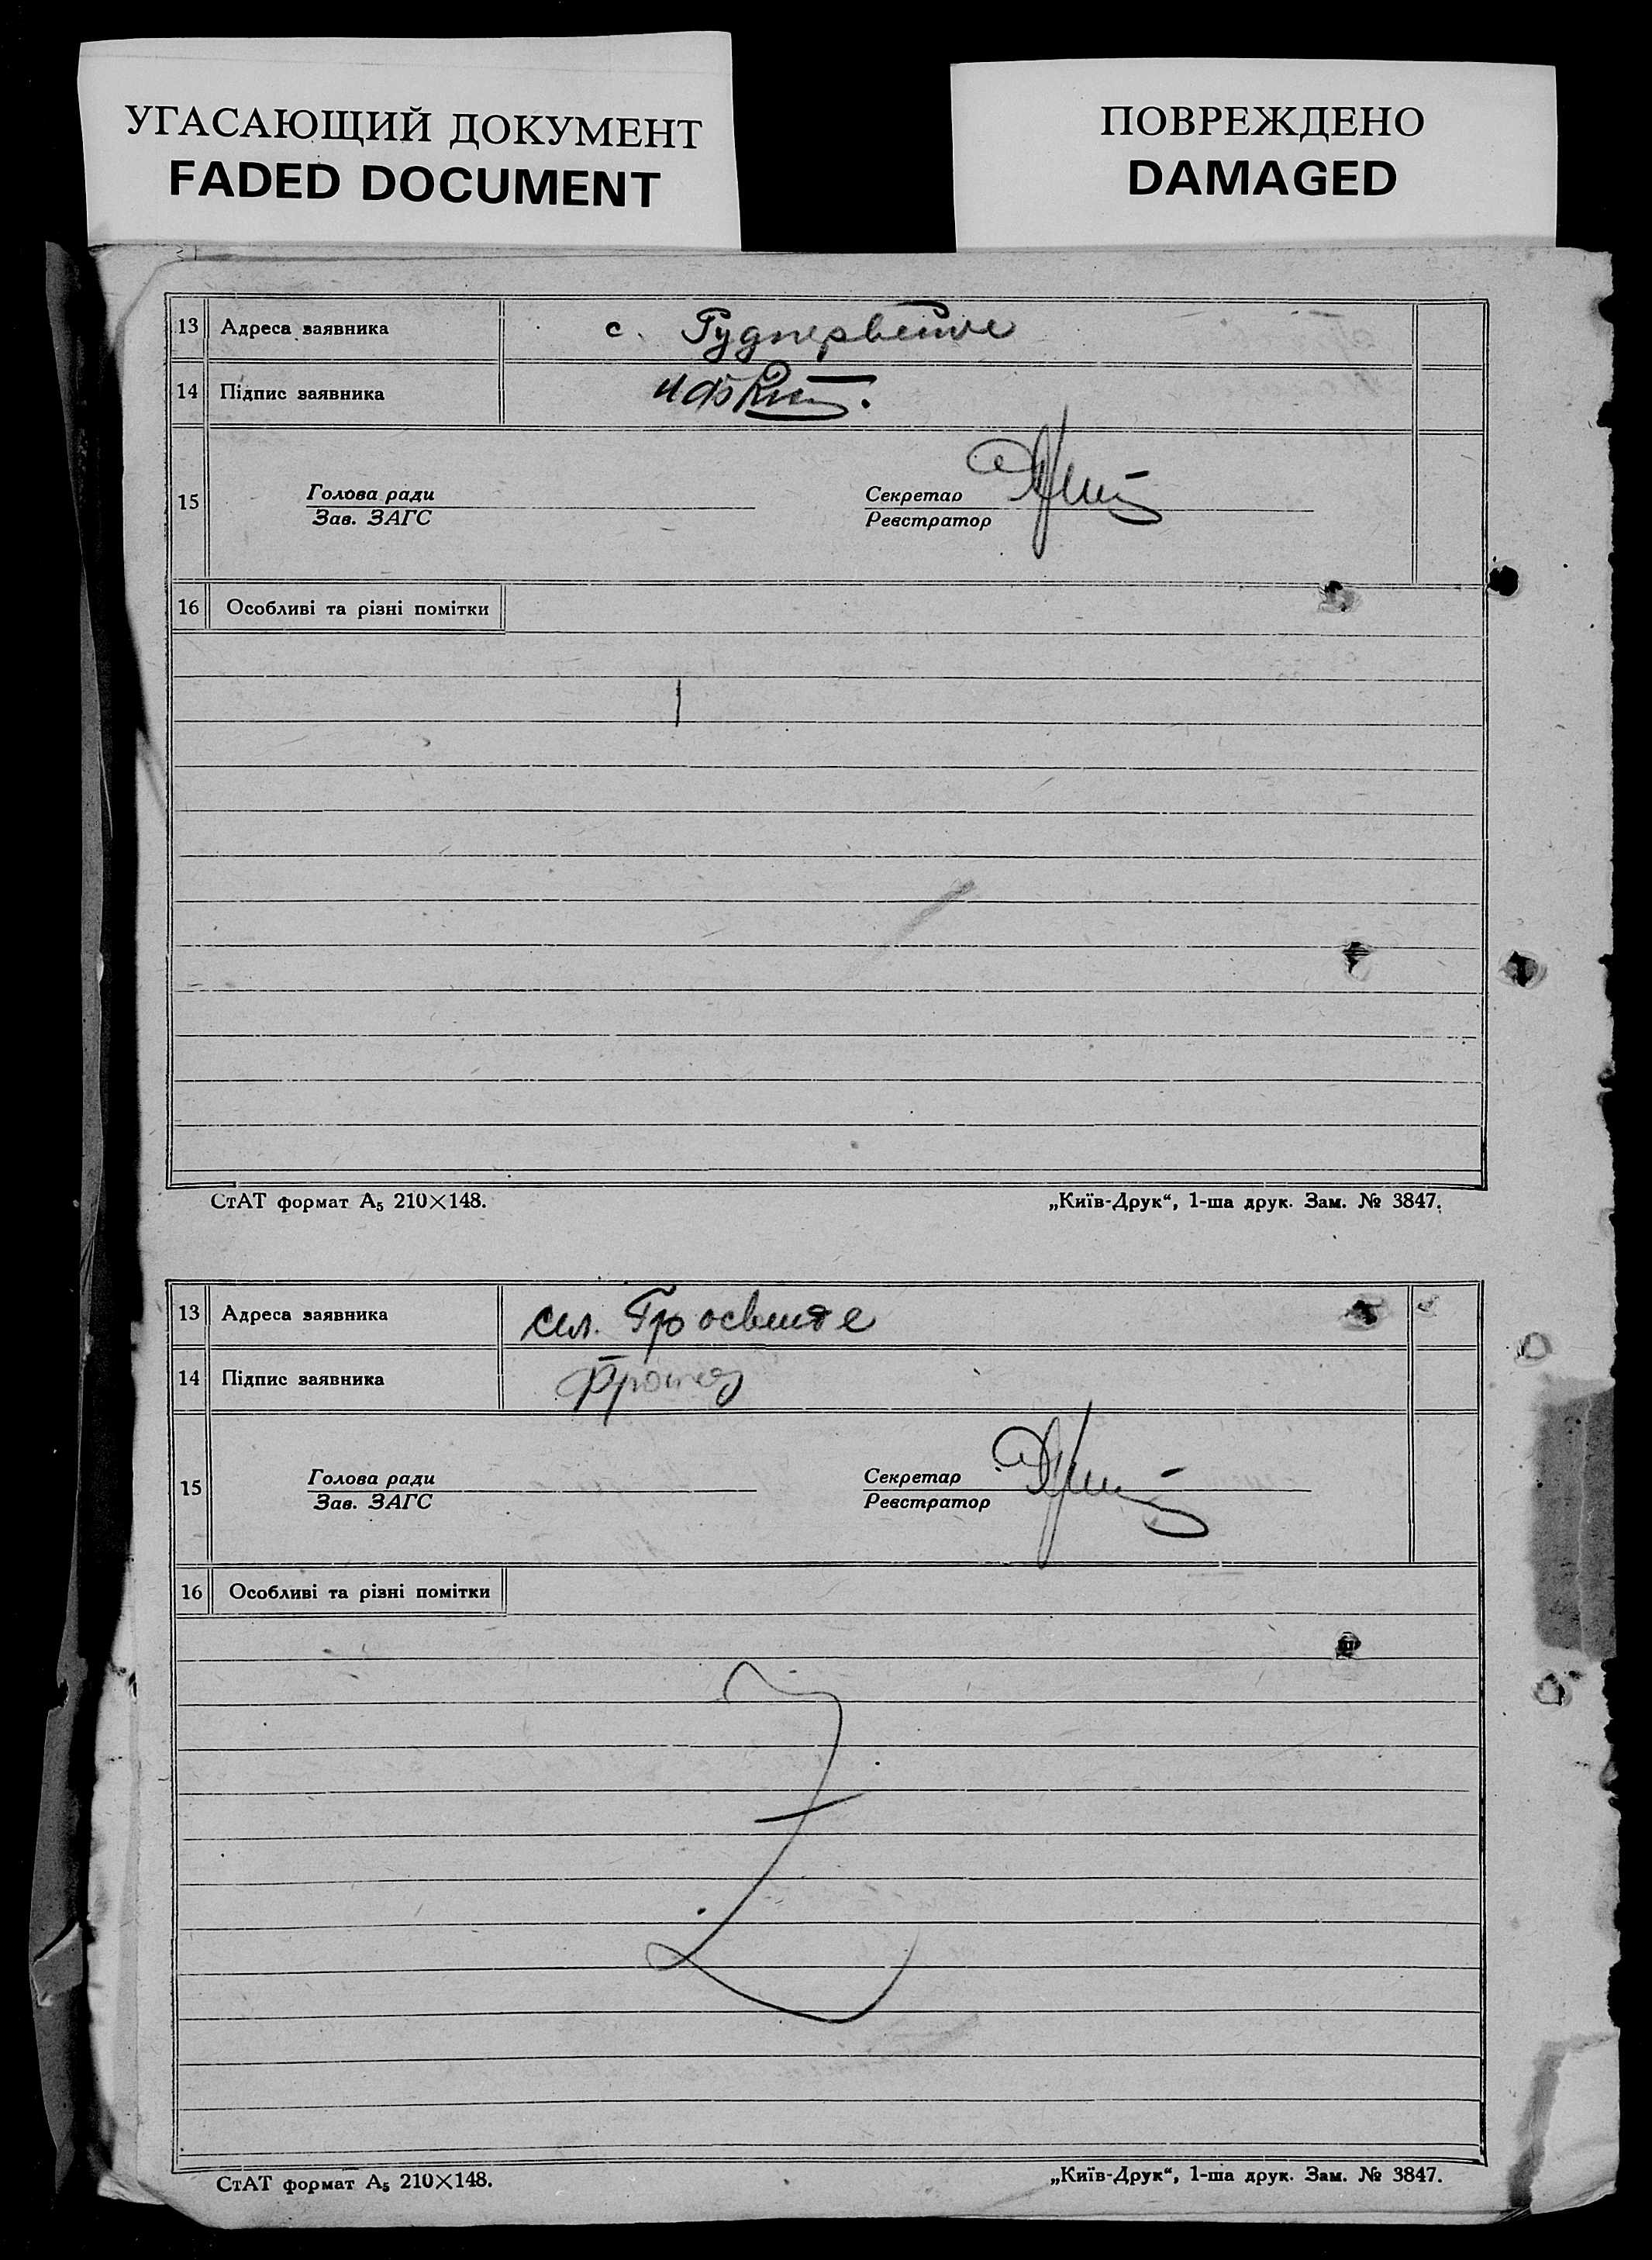 УГАСАЮЩИЙ ДОКУМЕНТ
FADED DOCUMENT
ПОВРЕЖДЕНО
DAMAGED
13 Адреса заявника с.
14 Підпис заявника
15 Голова ради
Зав. ЗАГС
Секретар
Реєстратор
16 Особливі та різні помітки
СтАТ формат А₅ 210×148.
„Київ-Друк“, 1-ша друк. Зам. № 3847.
13 Адреса заявника
14 Підпис заявника
15 Голова ради
Зав. ЗАГС
Секретар
Реєстратор
16 Особливі та різні помітки
СтАТ формат А₅ 210×148.
„Київ-Друк“, 1-ша друк. Зам. № 3847.